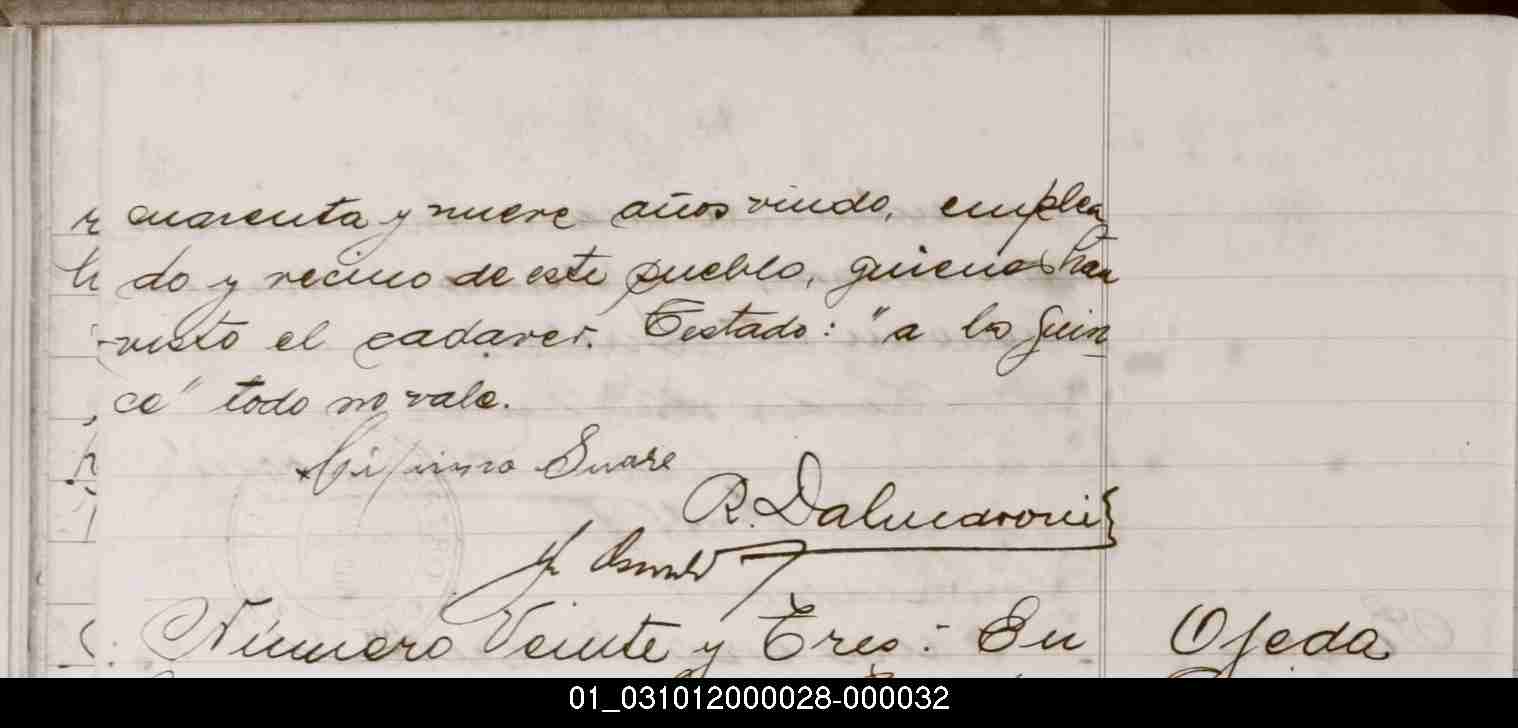 cuarenta y nueve años viudo, emplea
do y vecino de este pueblo, quienes han
visto el cadaver. Testado: "a las quin
ce" todo no vale.
Suare
R. Dalmaroni
Número Veinte y Tres: En
Ojeda
01_031012000028-000032